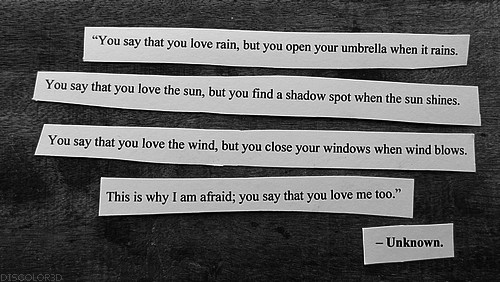 “You say that you love rain, but you open your umbrella when it rains.
You say that you love the sun, but you find a shadow spot when the sun shines.
You say that you love the wind, but you close your windows when wind blows.
This is why I am afraid; you say that you love me too.”
– Unknown.
DISCOLOR3D